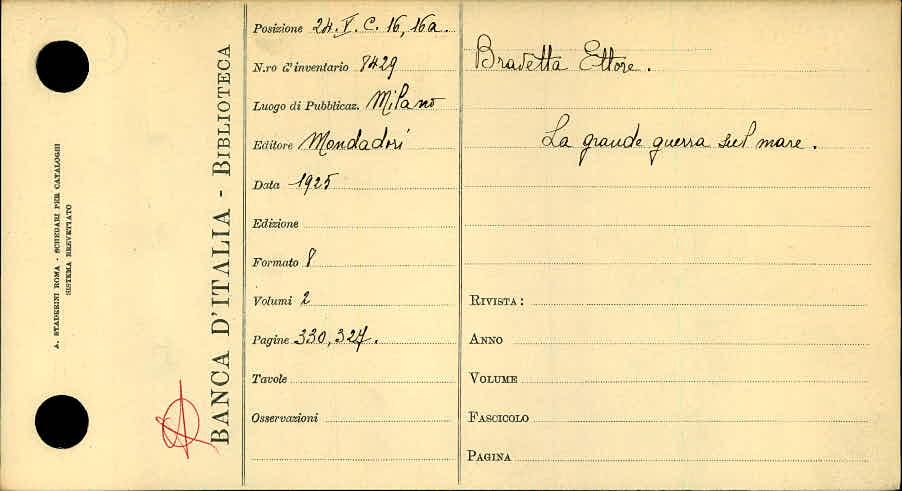 A. STADERINI ROMA - SCHEDARI PER CATALOGHI
SISTEMA BREVETTATO
BANCA D'ITALIA - BIBLIOTECA
Posizione 24. V. C. 16, 16a.
N.ro d'inventario 8429
Luogo di Pubblicaz. Milano
Editore Mondadori
Data 1925
Edizione
Formato 8
Volumi 2
Pagine 330, 327.
Tavole
Osservazioni
Bravetta Ettore.
La grande guerra sul mare.
RIVISTA:
ANNO
VOLUME
FASCICOLO
PAGINA